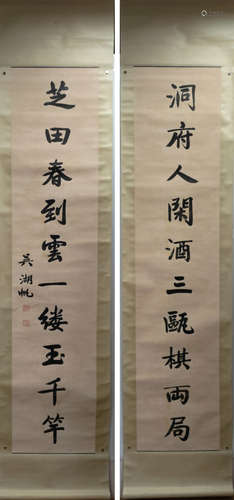 洞府人閑酒三甌棋両局
芝田春到雲一缕玉千竿
吳湖帆